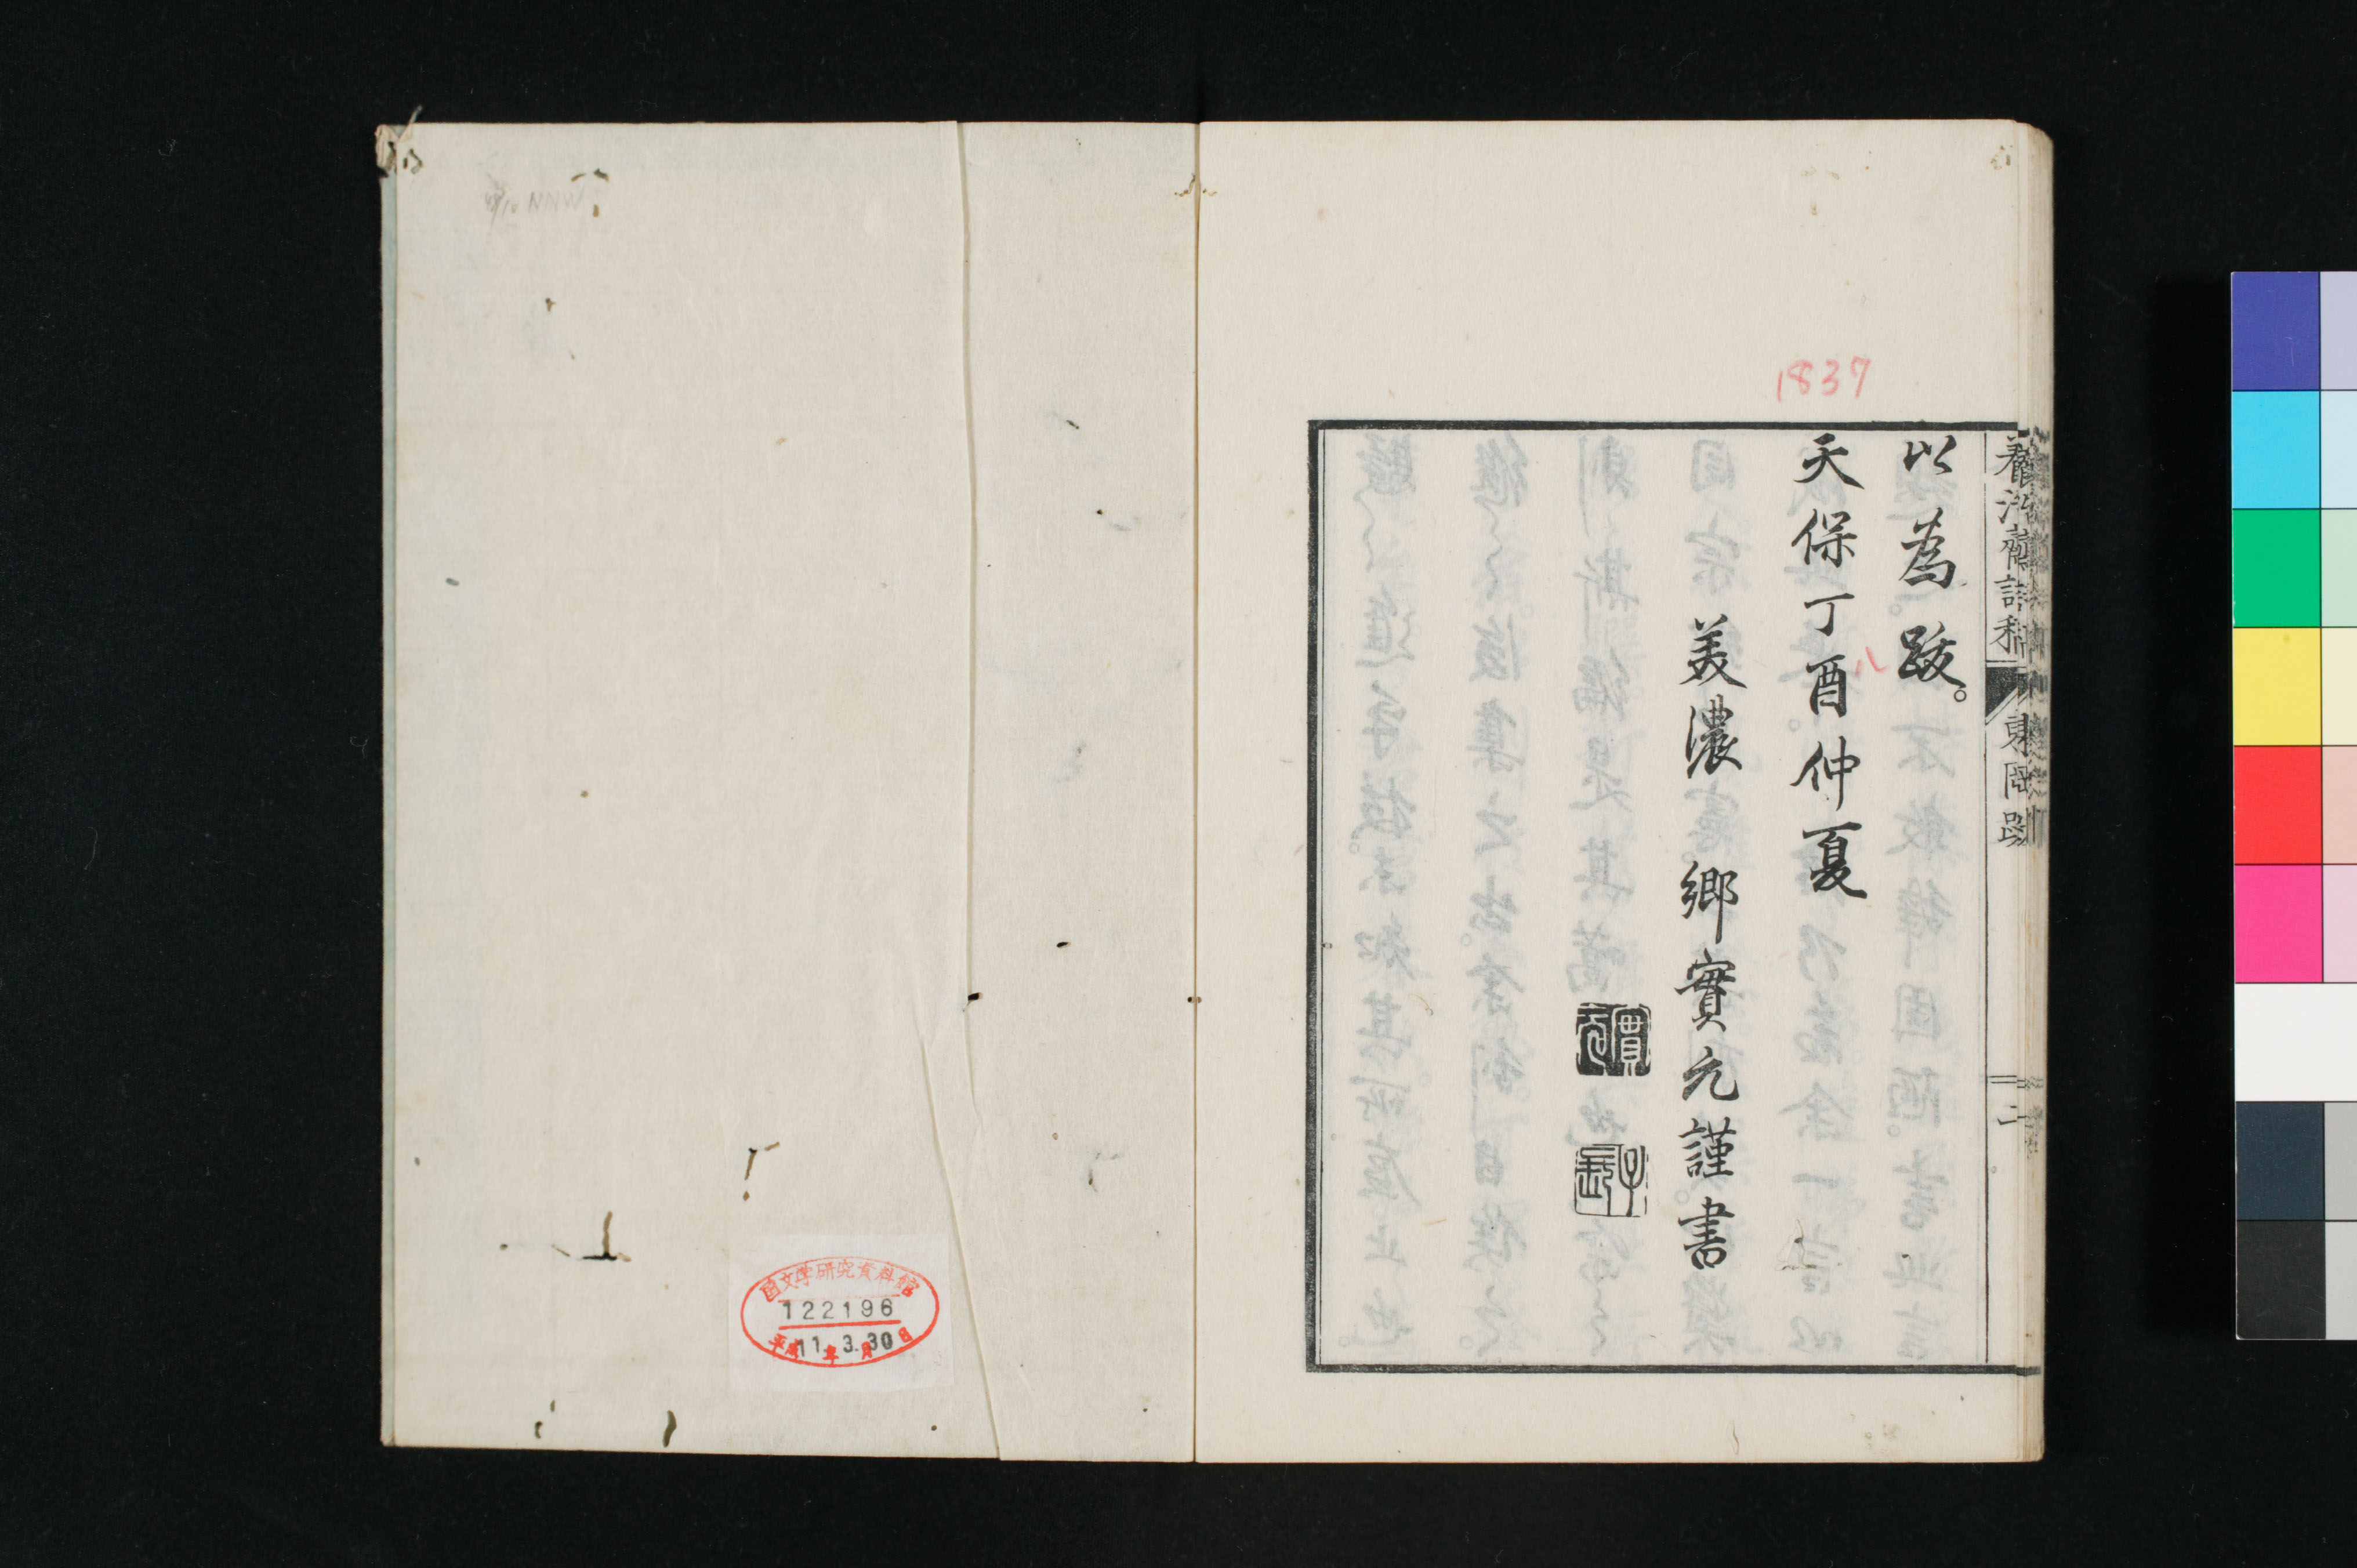 以為跋。
1837
天保丁酉仲夏
八
美濃 鄉實元謹書
東岡跋
二
国文学研究資料館
122196
平成11年3月30日